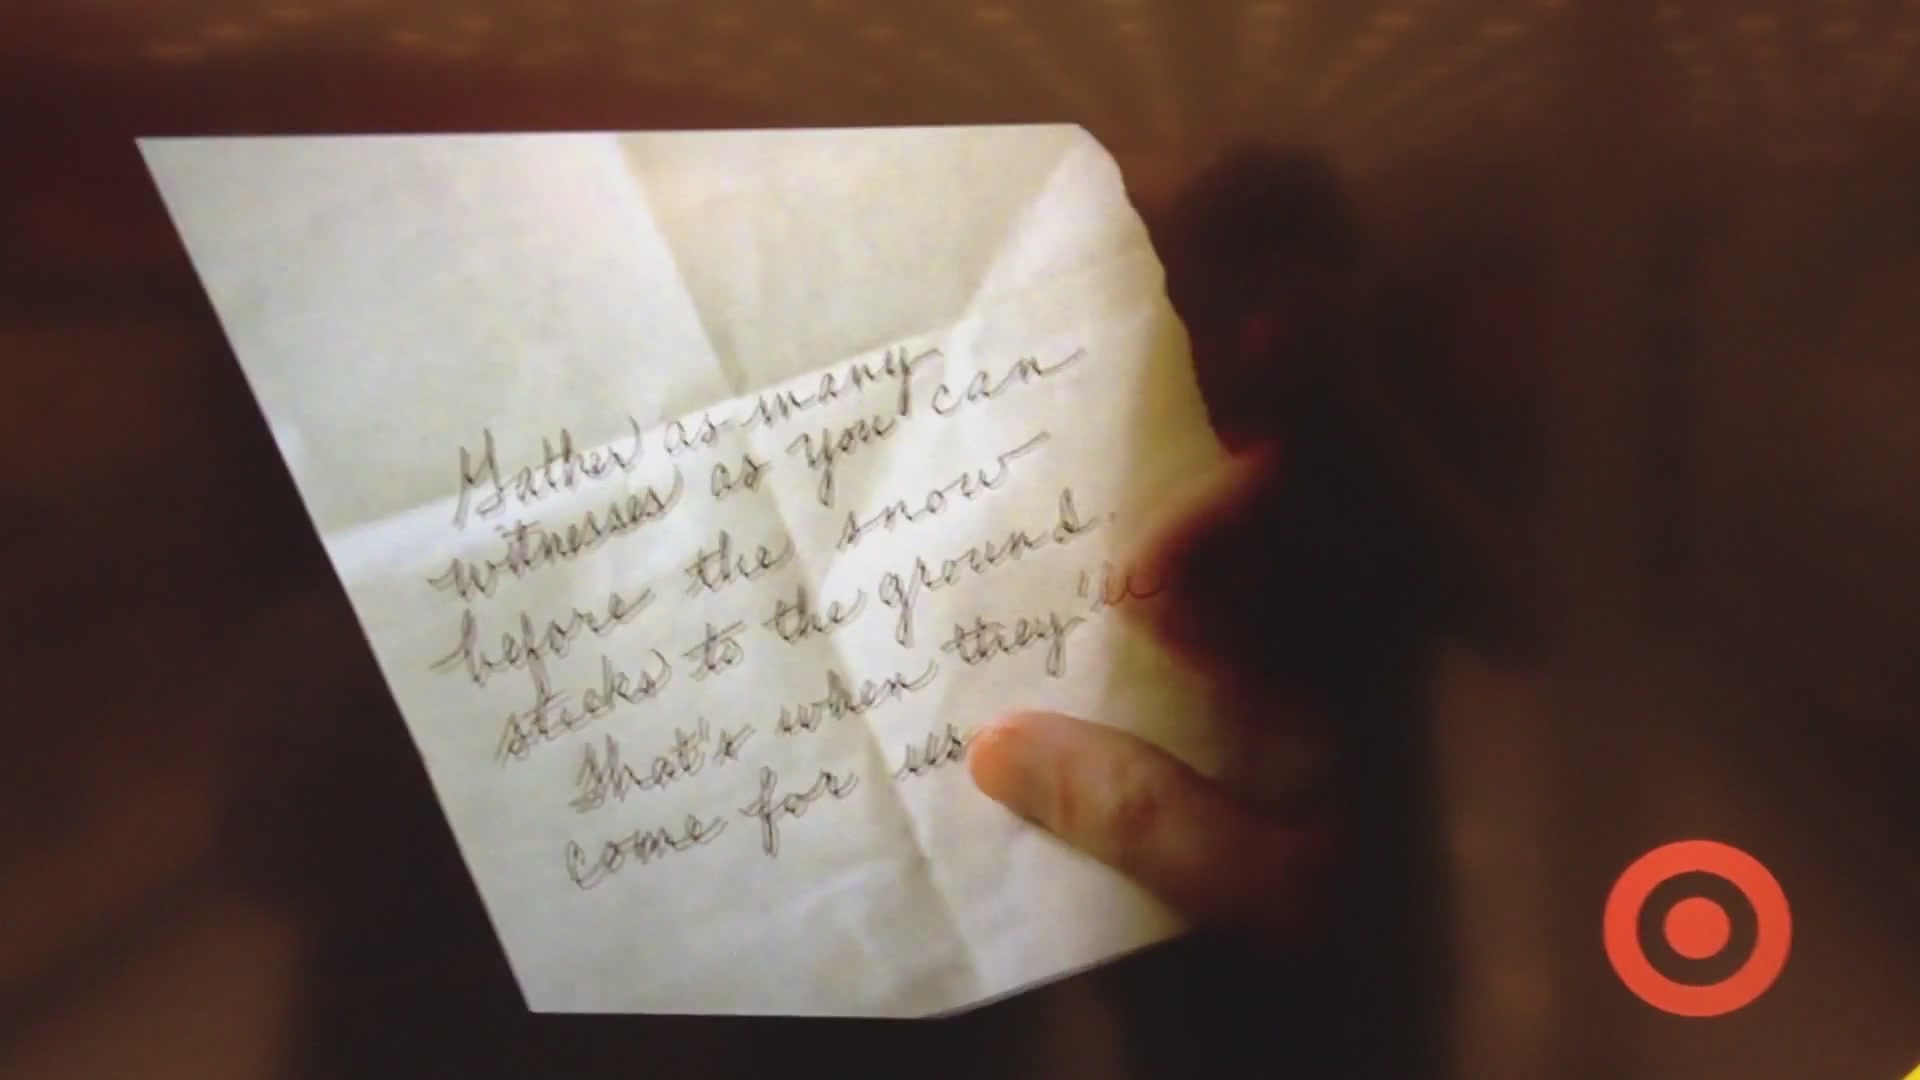 Gather as many
witnesses as you can
before the snow
sticks to the ground.
That's when they'll
come for us